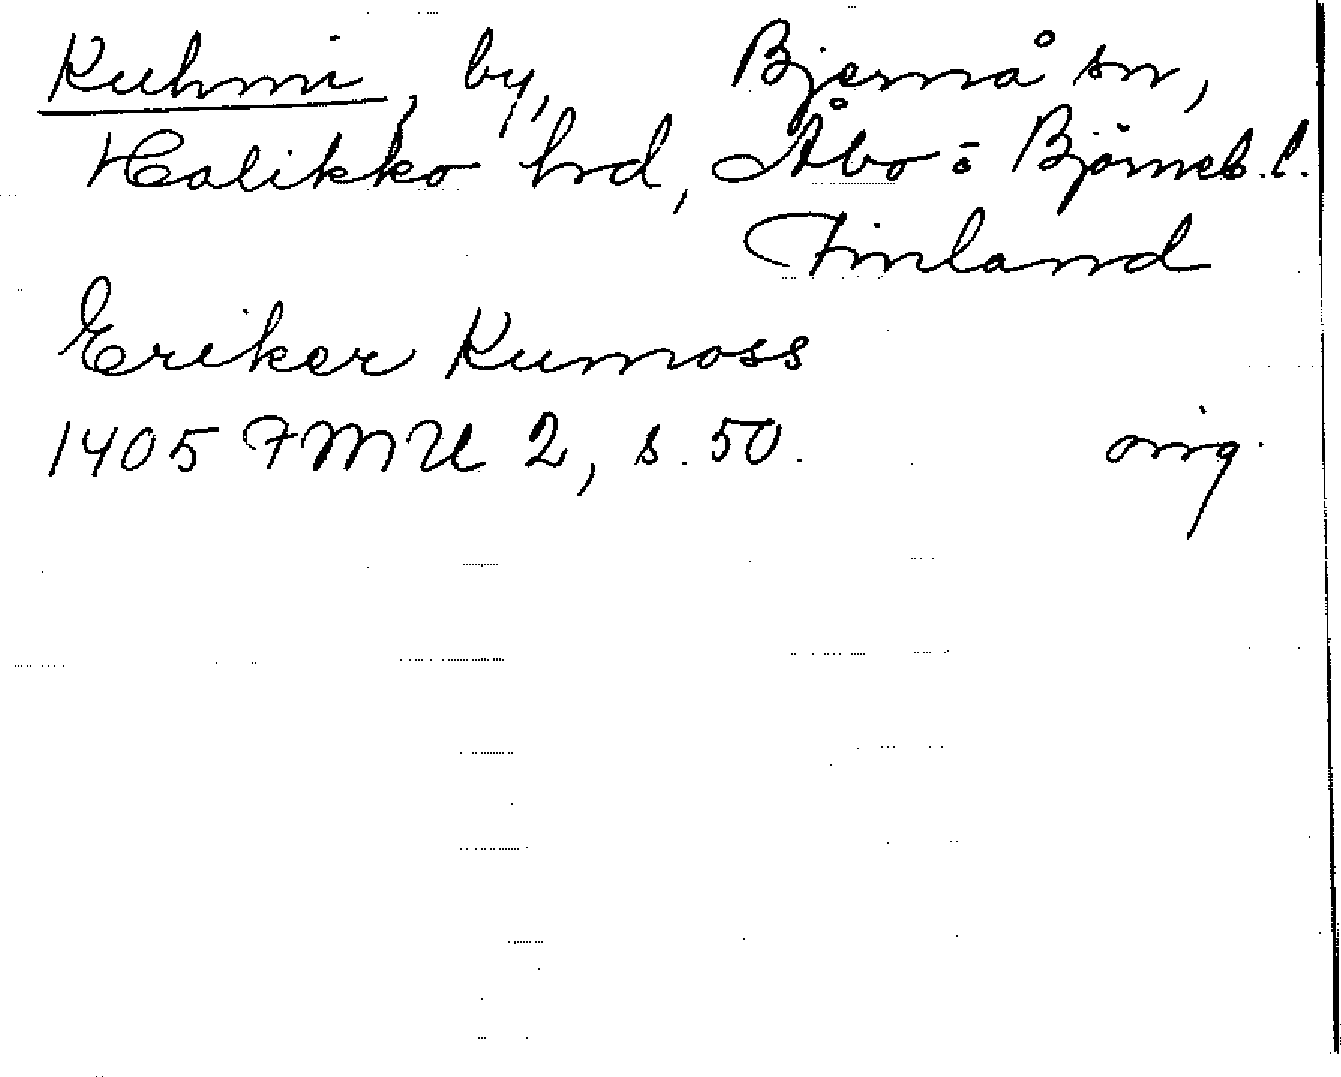 Kuhmi, by, Bjernå sn,
Halikko hrd, Åbo o Björneb. l.
Finland
Eriker Kumoss
1405 FMU 2, s. 50. orig.